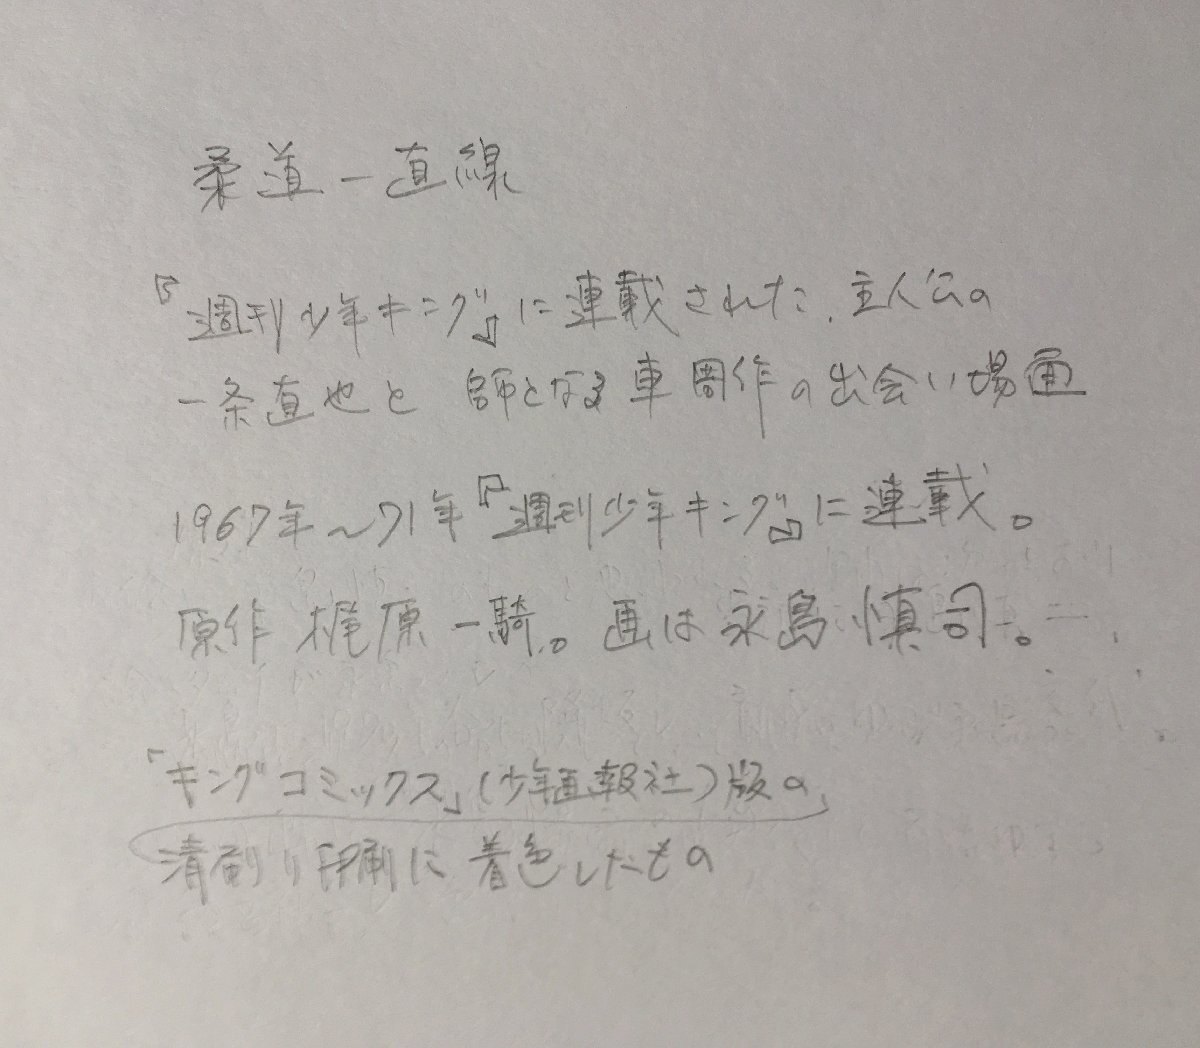 柔道一直線
『週刊少年キング』に連載された、主人公の
一条直也と 師となる車周作の出会い場面
1967年〜71年『週刊少年キング』に連載。
原作 梶原一騎。画は永島慎司。
「キングコミックス」(少年画報社)版の、
清刷り印刷に着色したもの